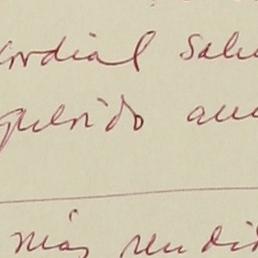 cordial salu
querido am
más rendid